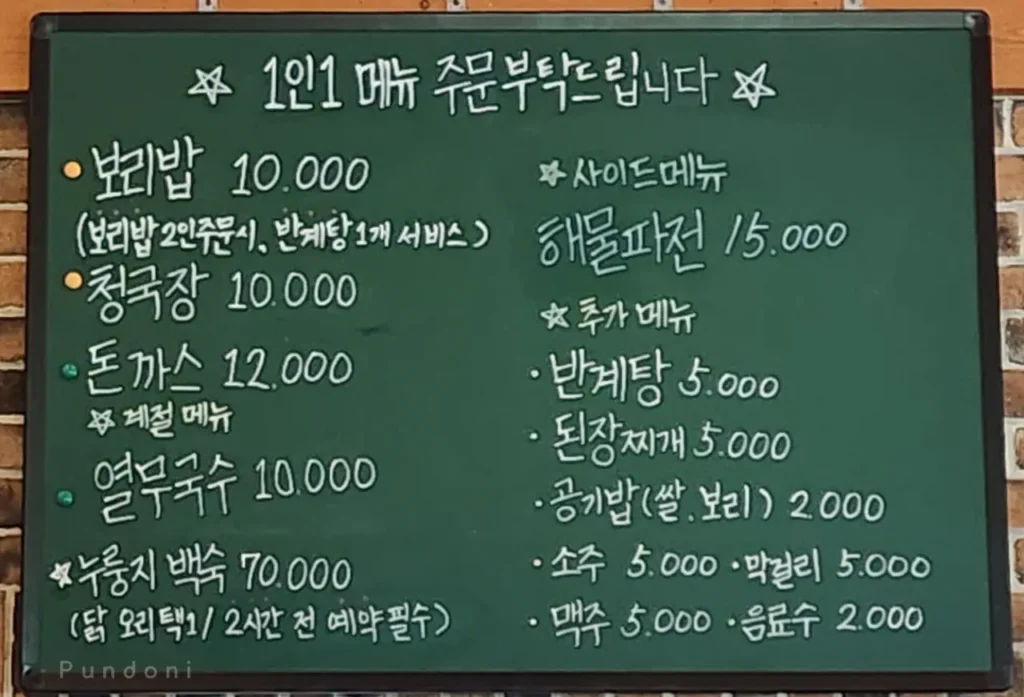 ☆ 1인1 메뉴 주문부탁드립니다 ☆
• 보리밥 10.000
(보리밥 2인주문시, 반계탕 1개 서비스)
• 청국장 10.000
• 돈까스 12.000
☆ 계절 메뉴
• 열무국수 10.000
★ 누룽지 백숙 70.000
(닭 오리 택1 / 2시간 전 예약 필수)
☆ 사이드메뉴
해물파전 15.000
☆ 추가 메뉴
· 반계탕 5.000
· 된장찌개 5.000
· 공기밥 (쌀. 보리) 2.000
· 소주 5.000 · 막걸리 5.000
· 맥주 5.000 · 음료수 2.000
Pundoni